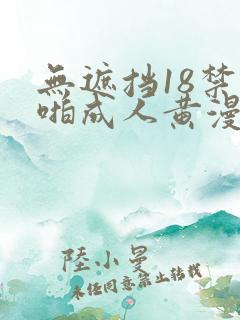 無遮挡18禁
啪成人黄漫
陸小曼
未經同意禁止轉載